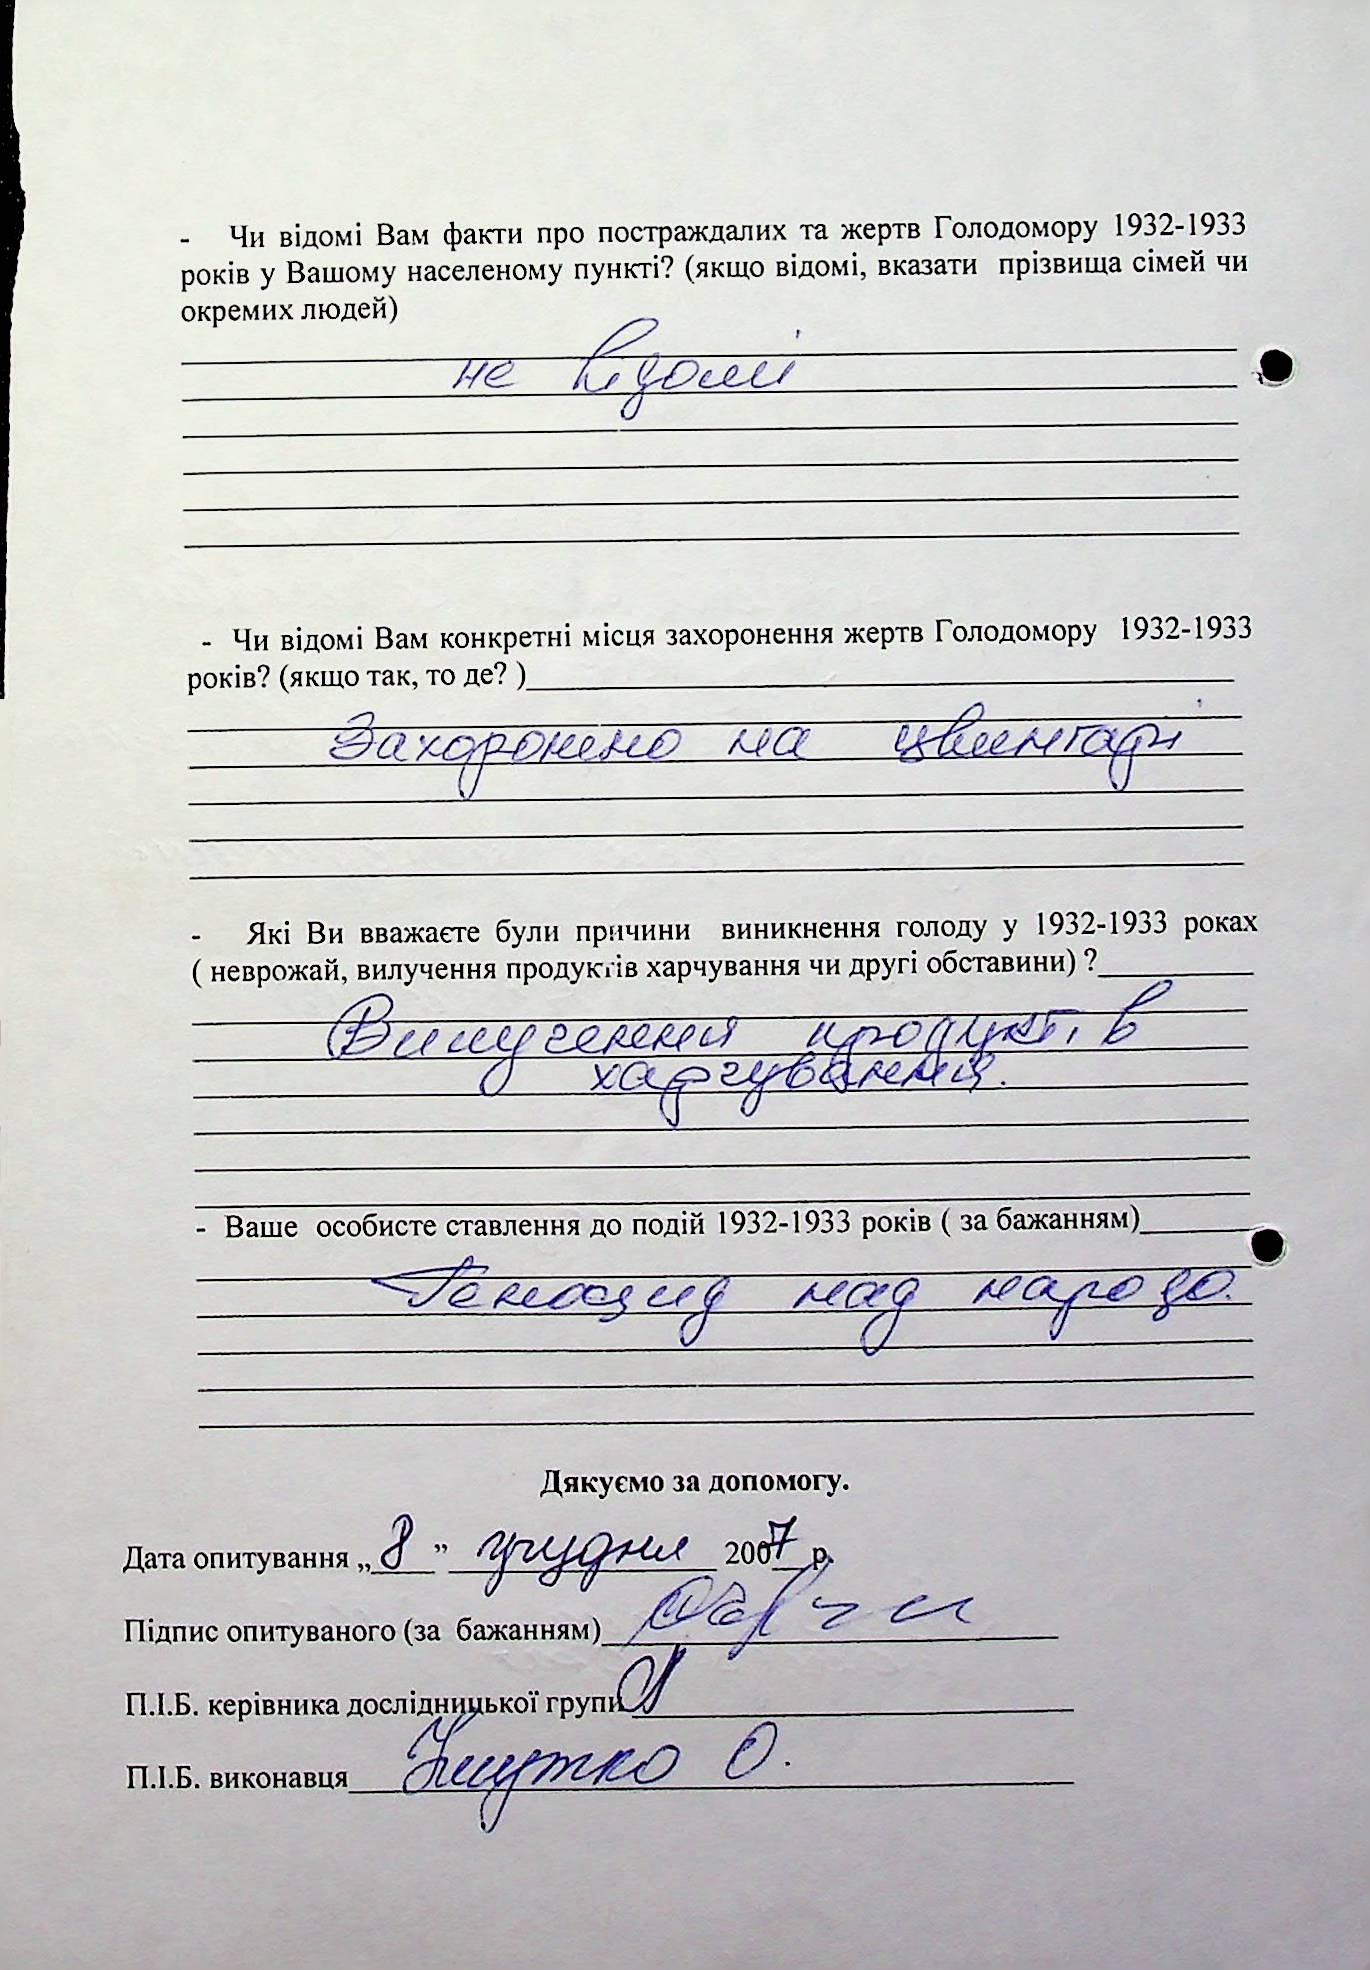 - Чи відомі Вам факти про постраждалих та жертв Голодомору 1932-1933
років у Вашому населеному пункті? (якщо відомі, вказати прізвища сімей чи
окремих людей)
не відомі
- Чи відомі Вам конкретні місця захоронення жертв Голодомору 1932-1933
років? (якщо так, то де? )
Захоронено на цвинтарі
- Які Ви вважаєте були причини виникнення голоду у 1932-1933 роках
( неврожай, вилучення продуктів харчування чи другі обставини) ?
Вилучення продуктів
харчування.
- Ваше особисте ставлення до подій 1932-1933 років ( за бажанням)
Геноцид над народо.
Дякуємо за допомогу.
Дата опитування „8” грудня 2007 р.
Підпис опитуваного (за бажанням)
П.І.Б. керівника дослідницької групи
П.І.Б. виконавця О.